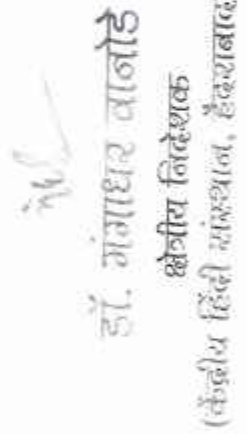 डॉ. गंगाधर वानोडे
क्षेत्रीय निदेशक
(केंद्रीय हिंदी संस्थान, हैदराबाद